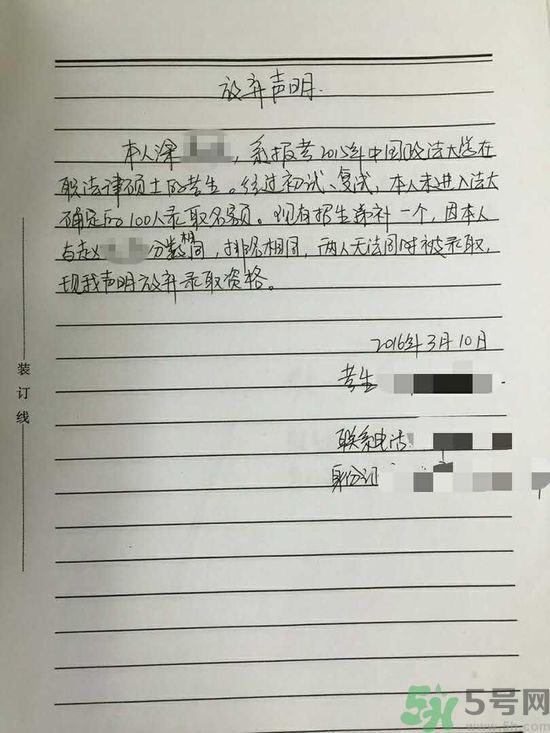 放弃声明
本人涂 ，系报考2015年中国政法大学在
职法律硕士的考生。经过初试、复试，本人未进入法大
确定的100人录取名额。现有招生递补一个，因本人
与赵 分数相同，排名相同，两人无法同时被录取，
现我声明放弃录取资格。
2016年3月10日
考生
联系电话：
身份证
装订线
5号网
www.5h.com